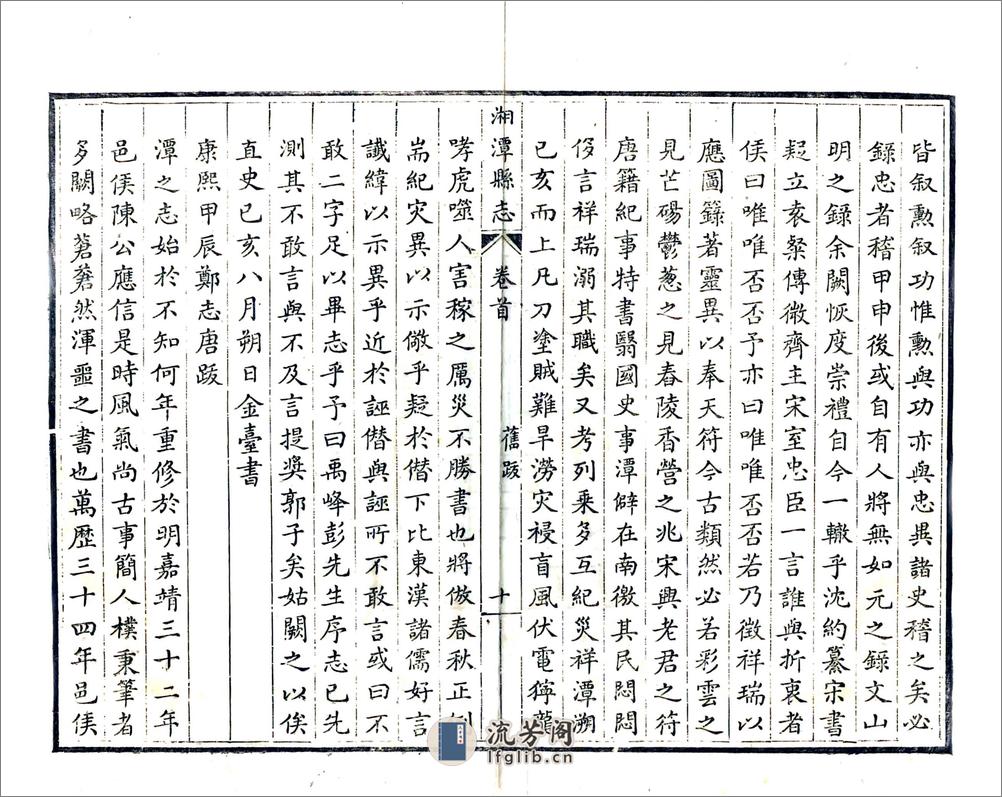 皆叙勲叙功惟勲與功亦與忠異諸史稽之矣必
錄忠者稽甲申後或自有人將無如元之錄文山
明之錄余闕恢度崇禮自今一轍乎沈約纂宋書
疑立袁粲傳微齊主宋室忠臣一言誰與折衷者
侯曰唯唯否否予亦曰唯唯否否若乃徵祥瑞以
應圖籙著靈異以奉天符今古類然必若彩雲之
見芒碭鬱葱之見舂陵香營之兆宋興老君之符
唐籍紀事特書翳國史事潭僻在南徼其民悶悶
侈言祥瑞溺其職矣又考列乘多互紀災祥潭溯
已亥而上凡刀塗賊難旱澇灾祲盲風伏電獰龍
湘潭縣志 卷首 舊跋 十
哮虎噬人害稼之厲災不勝書也將倣春秋正例
耑紀灾異以示儆乎疑於僭下比東漢諸儒好言
讖緯以示異乎近於誣僭與誣所不敢言或曰不
敢二字足以畢志乎予曰禹峰彭先生序志已先
測其不敢言與不及言提奬郭子矣姑闕之以俟
直史已亥八月朔日金臺書
康熙甲辰鄭志唐跋
潭之志始於不知何年重修於明嘉靖三十二年
邑侯陳公應信是時風氣尚古事簡人樸秉筆者
多闕略蒼蒼然渾噩之書也萬歷三十四年邑侯
流芳阁
lfglib.cn